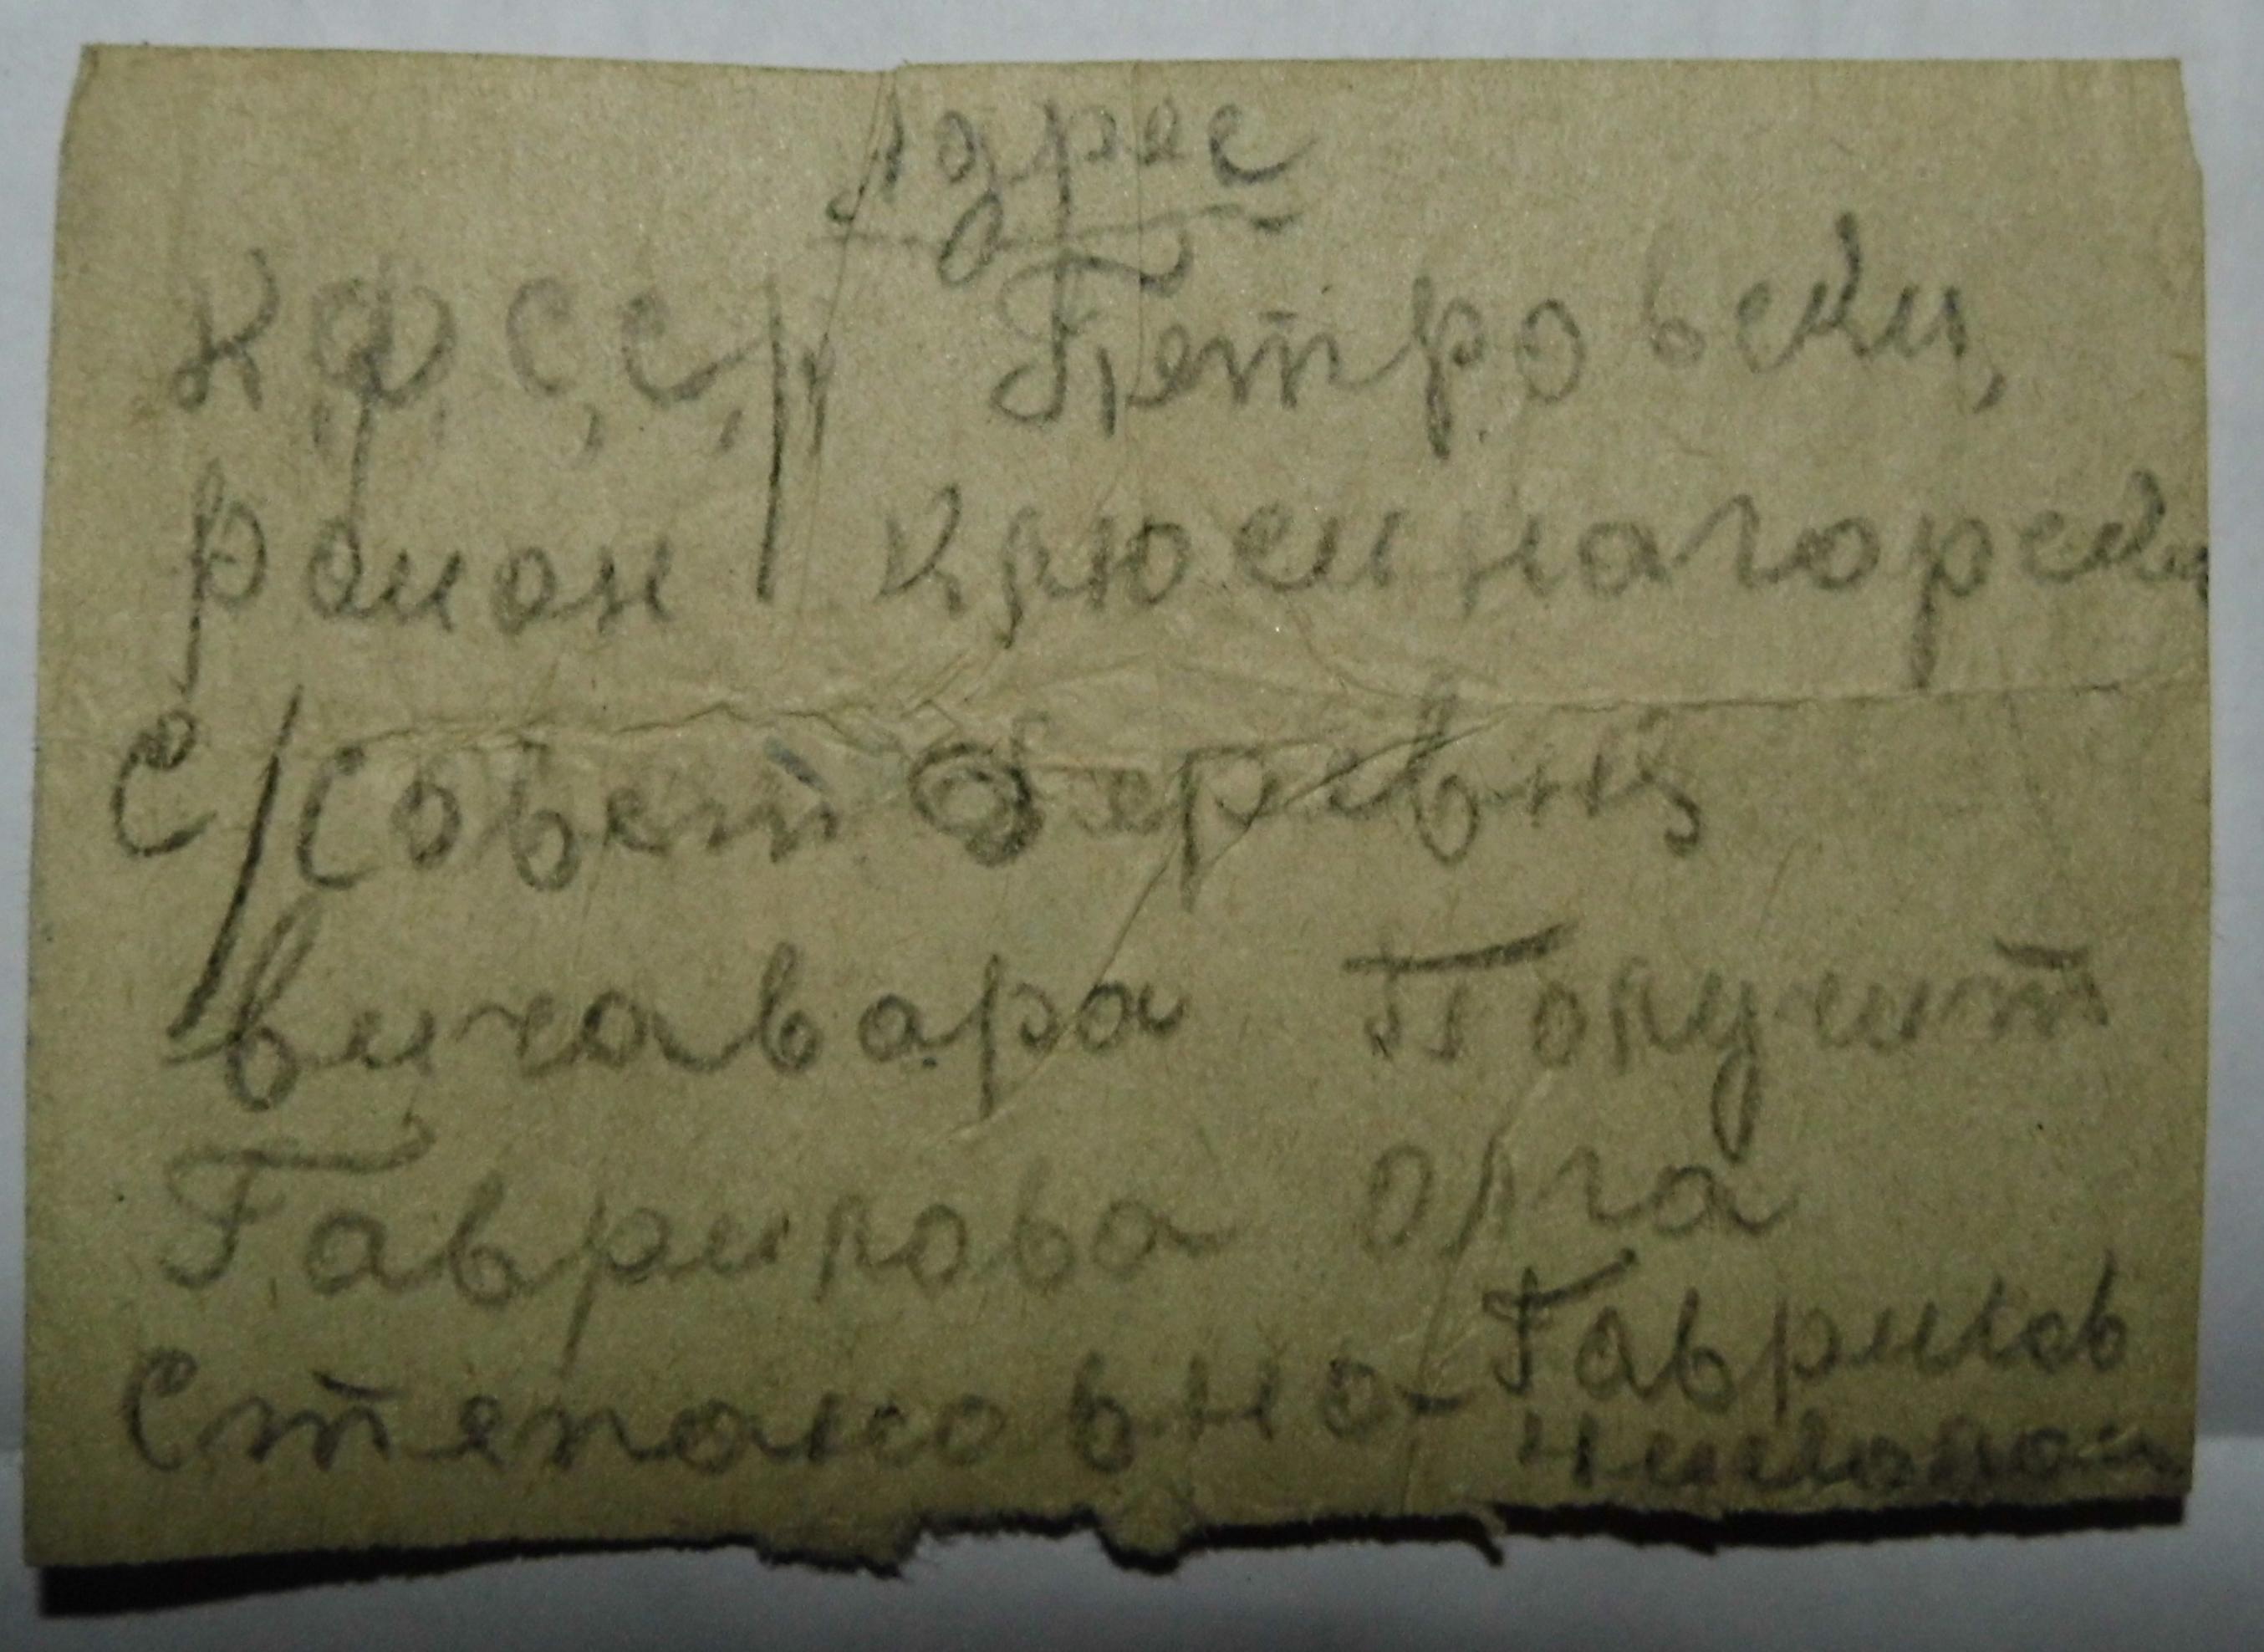 Адрес
К,Ф,С,С,р, Петровски,
раион Крюсинагорски
С/Совет деревня
вигавара Полушт
Гаврилова Олга
Степановна Гаврилов
Николаи